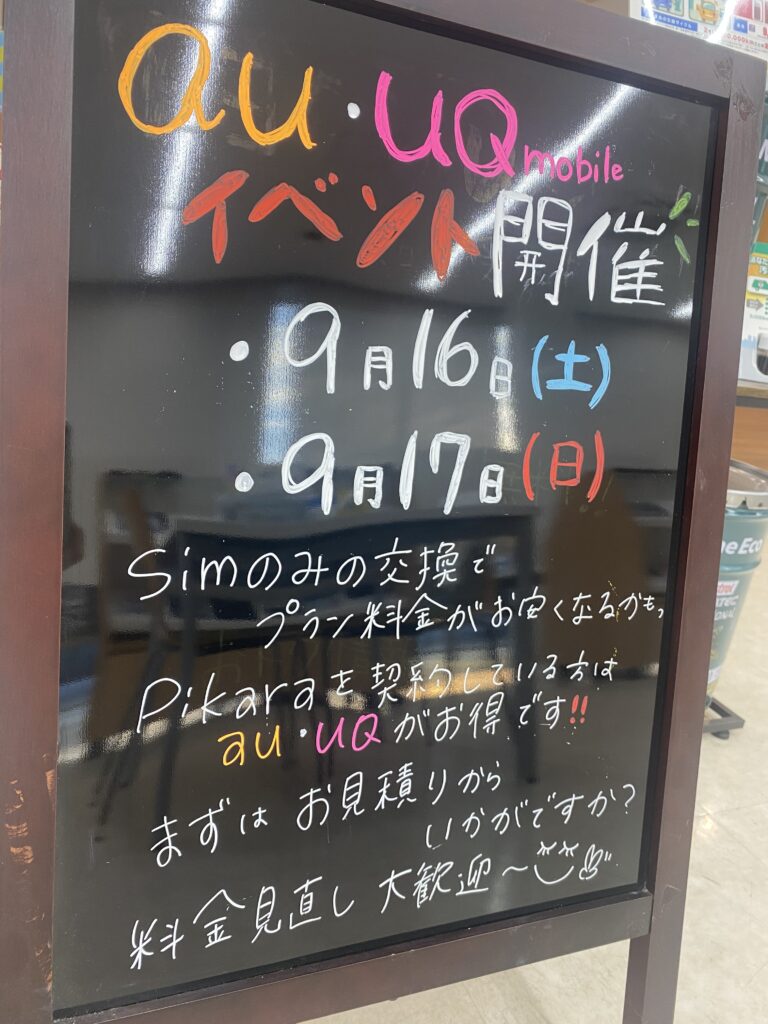 au・UQ mobile
イベント開催
・9月16日(土)
・9月17日(日)
Simのみの交換で
プラン料金がお安くなるかもっ
Pikaraを契約している方は
au・UQがお得です!!
まずは お見積りから
いかがですか?
料金見直し 大歓迎～
ne Eco